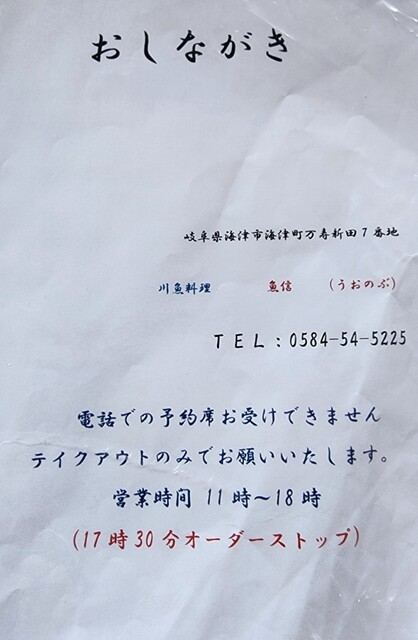 おしながき
岐阜県海津市海津町万寿新田7番地
川魚料理 魚信 (うおのぶ)
TEL:0584-54-5225
電話での予約席お受けできません
テイクアウトのみでお願いいたします。
営業時間 11時~18時
(17時30分オーダーストップ)